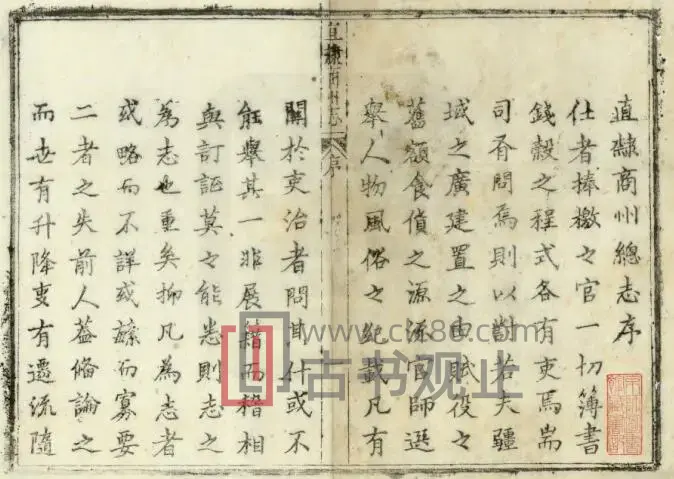 直隸商州總志序
仕者捧檄之官一切簿書
錢穀之程式各有吏焉耑
司胥問焉則以對若夫疆
域之廣建置之由賦役之
舊額食貨之源流官師選
舉人物風俗之紀載凡有
直隸商州志 序
關於吏治者問其什或不
能舉其一非展籍而稽相
與訂証莫之能悉則志之
為志也重矣抑凡為志者
或略而不詳或蕪而寡要
二者之失前人蓋俻論之
而世有升降叓有遷流隨
古书观止